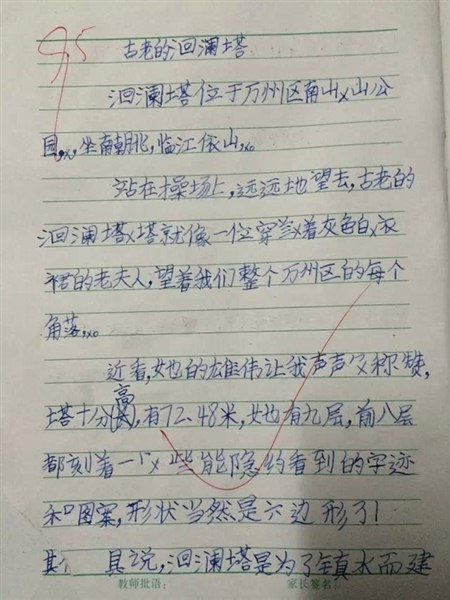 95
古老的洄澜塔
洄澜塔位于万州区南山山公
园,坐南朝北,临江依山。
站在操场上,远远地望去,古老的
洄澜塔塔就像一位穿着灰色白衣
裙的老夫人,望着我们整个万州区的每个
角落。
近看,她的雄伟让我声声称赞,
塔十分高,有72.48米,她有九层,前八层
都刻着一些能隐约看到的字迹
和图案,形状当然是六边形了
其 具说,洄澜塔是为了镇水而建
教师批语: 家长签名: